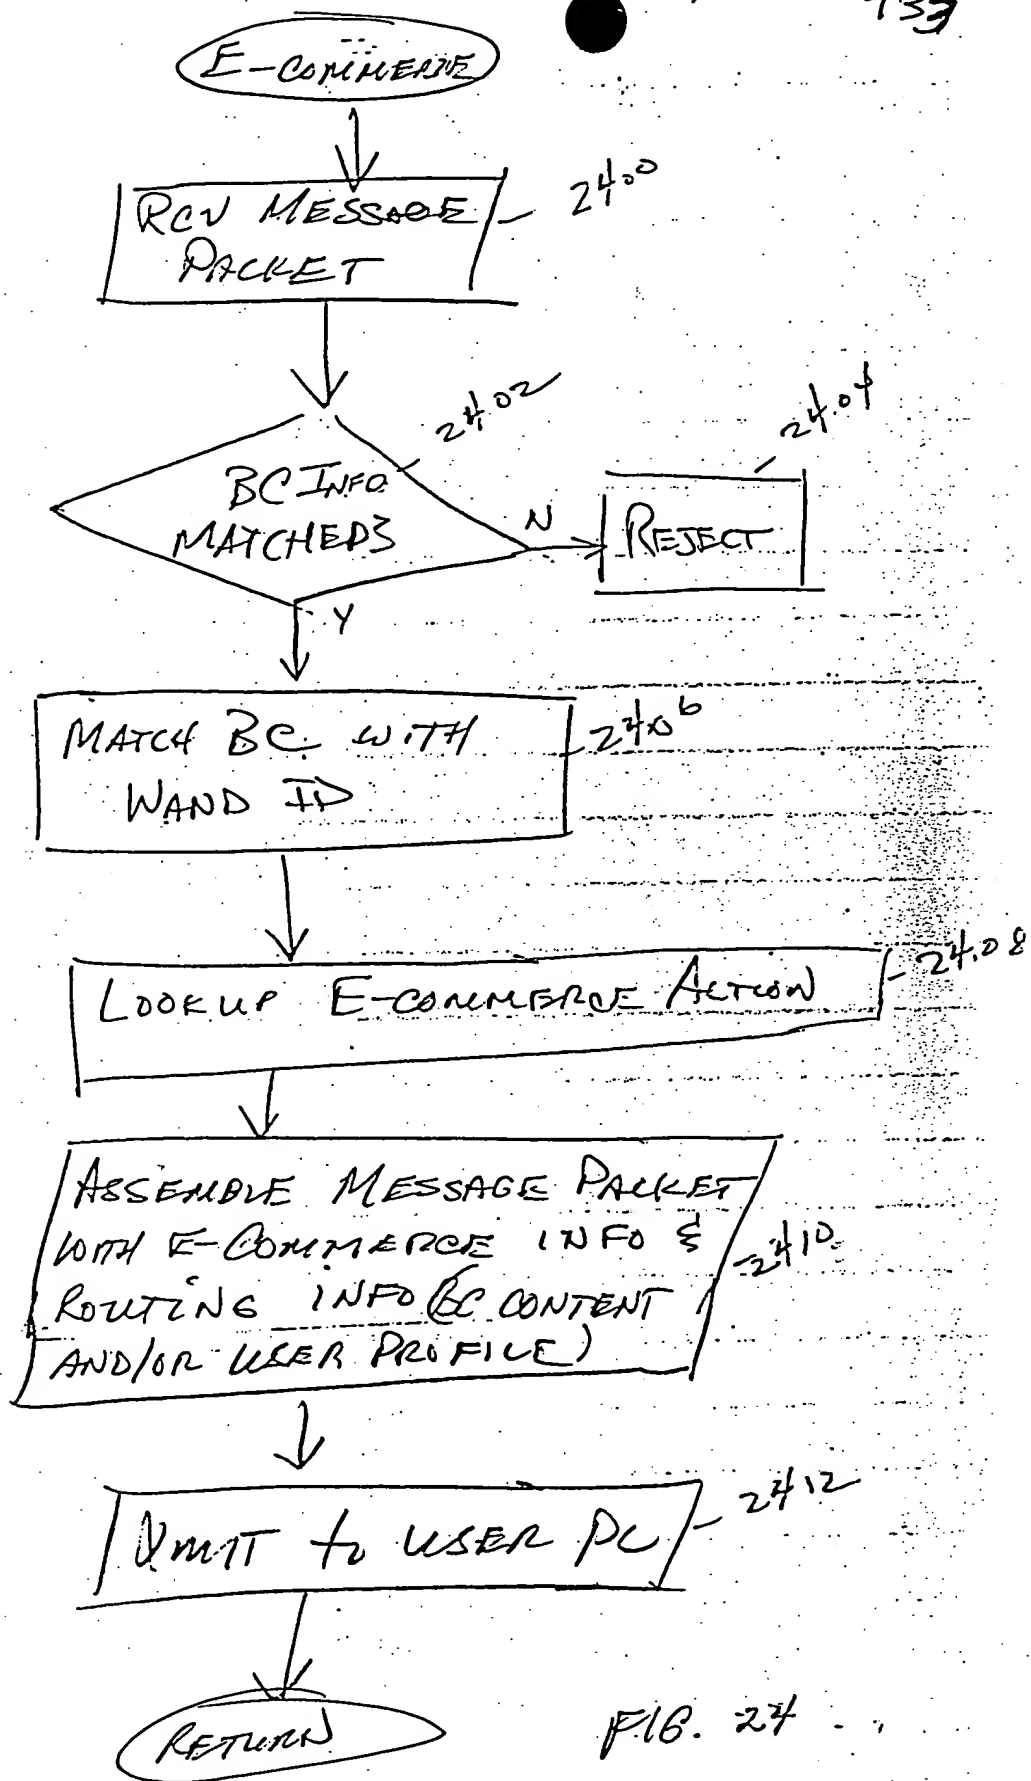 733
E-COMMERCE
RCV MESSAGE
PACKET
2400
BC INFO
MATCHED?
2402
N
REJECT
2404
Y
MATCH BC WITH
WAND ID
2406
LOOKUP E-COMMERCE ACTION
2408
ASSEMBLE MESSAGE PACKET
WITH E-COMMERCE INFO &
ROUTING INFO (BC CONTENT
AND/OR USER PROFILE)
2410
XMIT to USER PC
2412
RETURN
FIG. 24